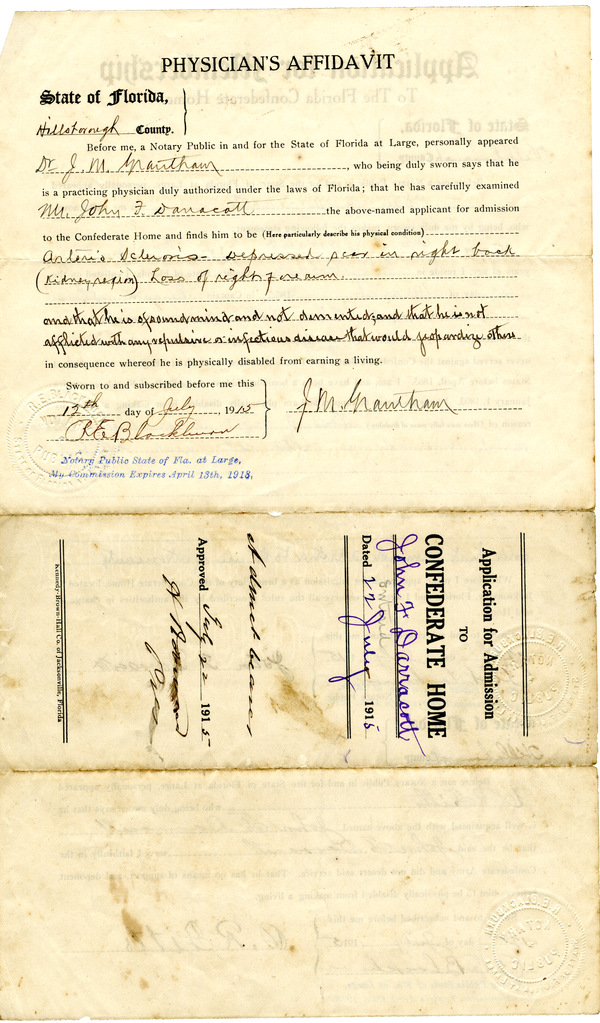 PHYSICIAN'S AFFIDAVIT
State of Florida,
Hillsborough County.
Before me, a Notary Public in and for the State of Florida at Large, personally appeared
Dr J. M. Grantham, who being duly sworn says that he
is a practicing physician duly authorized under the laws of Florida; that he has carefully examined
Mr. John F Darracott the above-named applicant for admission
to the Confederate Home and finds him to be (Here particularly describe his physical condition)
Sclerosis - Depressed scar in right back
(Kidney region) Loss of right forearm.
and that he is of sound mind and not demented, and that he is not
afflicted with any repulsive or infectious disease that would jeopardize others
in consequence whereof he is physically disabled from earning a living.
Sworn to and subscribed before me this
12th day of July, 1915
J. M. Grantham
R E Blackburn
Notary Public State of Fla. at Large,
My Commission Expires April 13th, 1918,
Application for Admission
TO
CONFEDERATE HOME
John F Darracott
Dated 22 July 1915
Approved July 22 1915
Kennedy-Brown-Hall Co. of Jacksonville, Florida